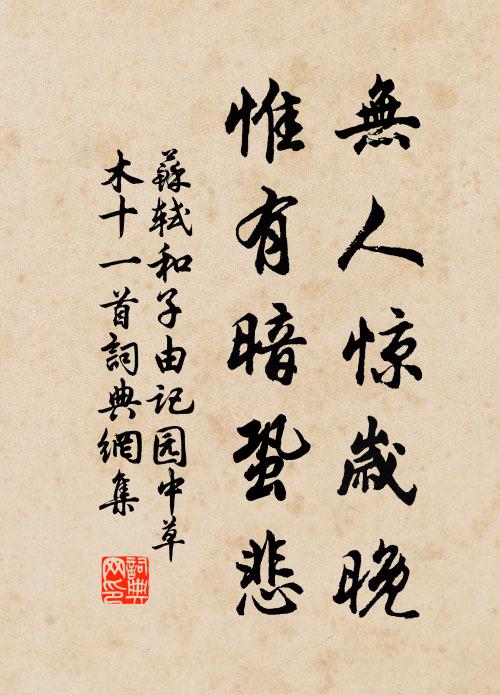 無人惊歲晚
惟有暗蛩悲
蘇軾和子由记园中草
木十一首詞典網集
詞典网印